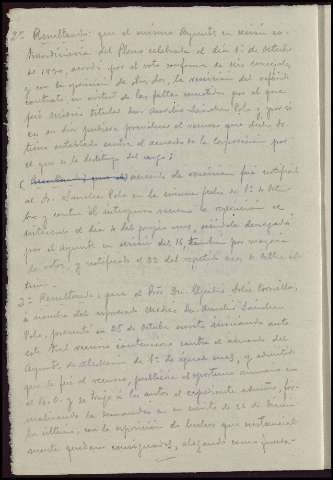 2º Resultando: que el mismo Ayunto en sesión ex-
traordinaria del Pleno celebrada el día 1º de Octubre
de 1930, acordó por el voto conforme de seis concejales
y con la oposición de dos, la rescisión del referido
contrato en virtud de las faltas cometidas por el que
fué médico titular don Sánchez Pola y por si
en su dia pudiera prevalecer el recurso que dicho
tiene entablado contra el acuerdo de la Corporación por
el que se le destituyó del cargo;
acuerdo de rescisión fue notificado
al Sr. Sánchez Pola en la misma fecha de 1º de Octu-
bre y contra él interpuso recurso de reposición el
destituido el día 4 del propio mes, siéndole denegada
por el Ayunto en sesión del 16, también por mayoría
de votos, y notificado el 22 del repetido mes de Octubre
2º Resultando: que el Pror. Dn.
a nombre del expresado Médico Dn. Sánchez
Pola, presentó en 25 de Octubre escrito iniciando ante
este Tral recurso contencioso contra el acuerdo del
Ayunto de de 1º de aquel mes, y admitido
que fué el recurso, publicóse el oportuno anuncio en
el B.O. y se trajo a los autos el expediente admtvo, for-
malizando la demanda en escrito de 26 de Diciem-
bre último, con la exposición de hechos que sustancial-
mente quedan consignados, alegando como funda-